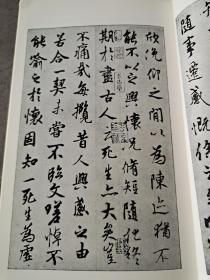 隨事遷感慨係
欣俛仰之間以為陳迹猶不
能不以之興懷況脩短隨化終
期於盡古人云死生亦大矣豈
不痛哉每攬昔人興感之由
若合一契未嘗不臨文嗟悼不
能喻之於懷固知一死生為虛